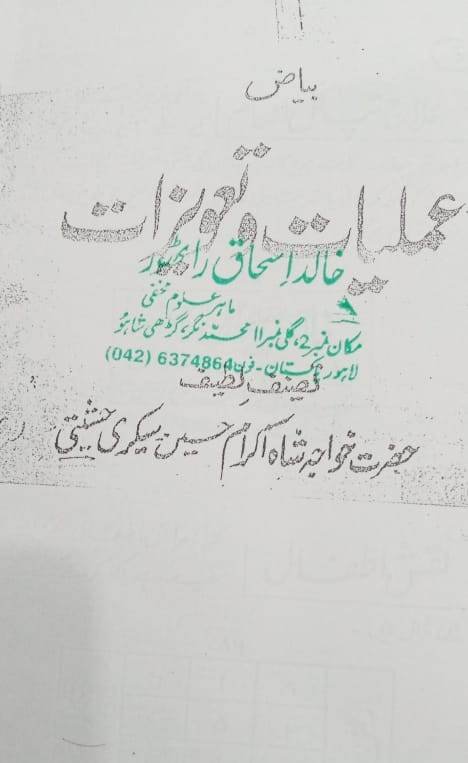 بیاض
عملیات و تعویزات
خالد اسحاق راٹھور
ماہر علوم مخفی
مکان نمبر 2، گلی نمبر 11 محمد نگر، گڑھی شاہو
لاہور پاکستان - فون 6374864 (042)
تصنیف لطیف
حضرت خواجہ شاہ اکرام حسین سیکری چشتی